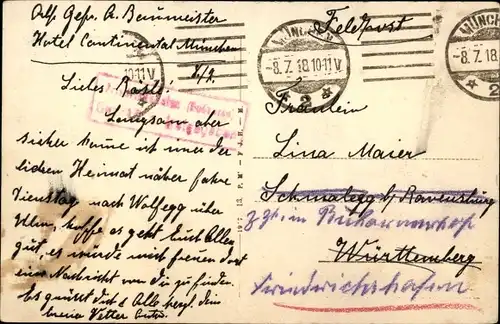 Abs. Gefr. A. Braumeister
Hotel Continental München
8/7.
Liebes Basle!
Langsam aber
sicher komme ich und der
lieben Heimat näher fahre
Dienstag nach Wolfegg über
Ulm, hoffe es geht Euch Allen
gut, es würde mich freuen dort
eine Nachricht von dir zu finden.
Es grüßt Dich & Alle herzl. Dein
Vetter
Feldpost
MÜNCHEN
-8.7.18.10-11V
* 2 *
MÜNCHEN
-8.7.18
* 2
10-11V
Fräulein
Lina Maier
Schmalegg b/Ravensburg
z. Zt. in
Württemberg
Friedrichshafen